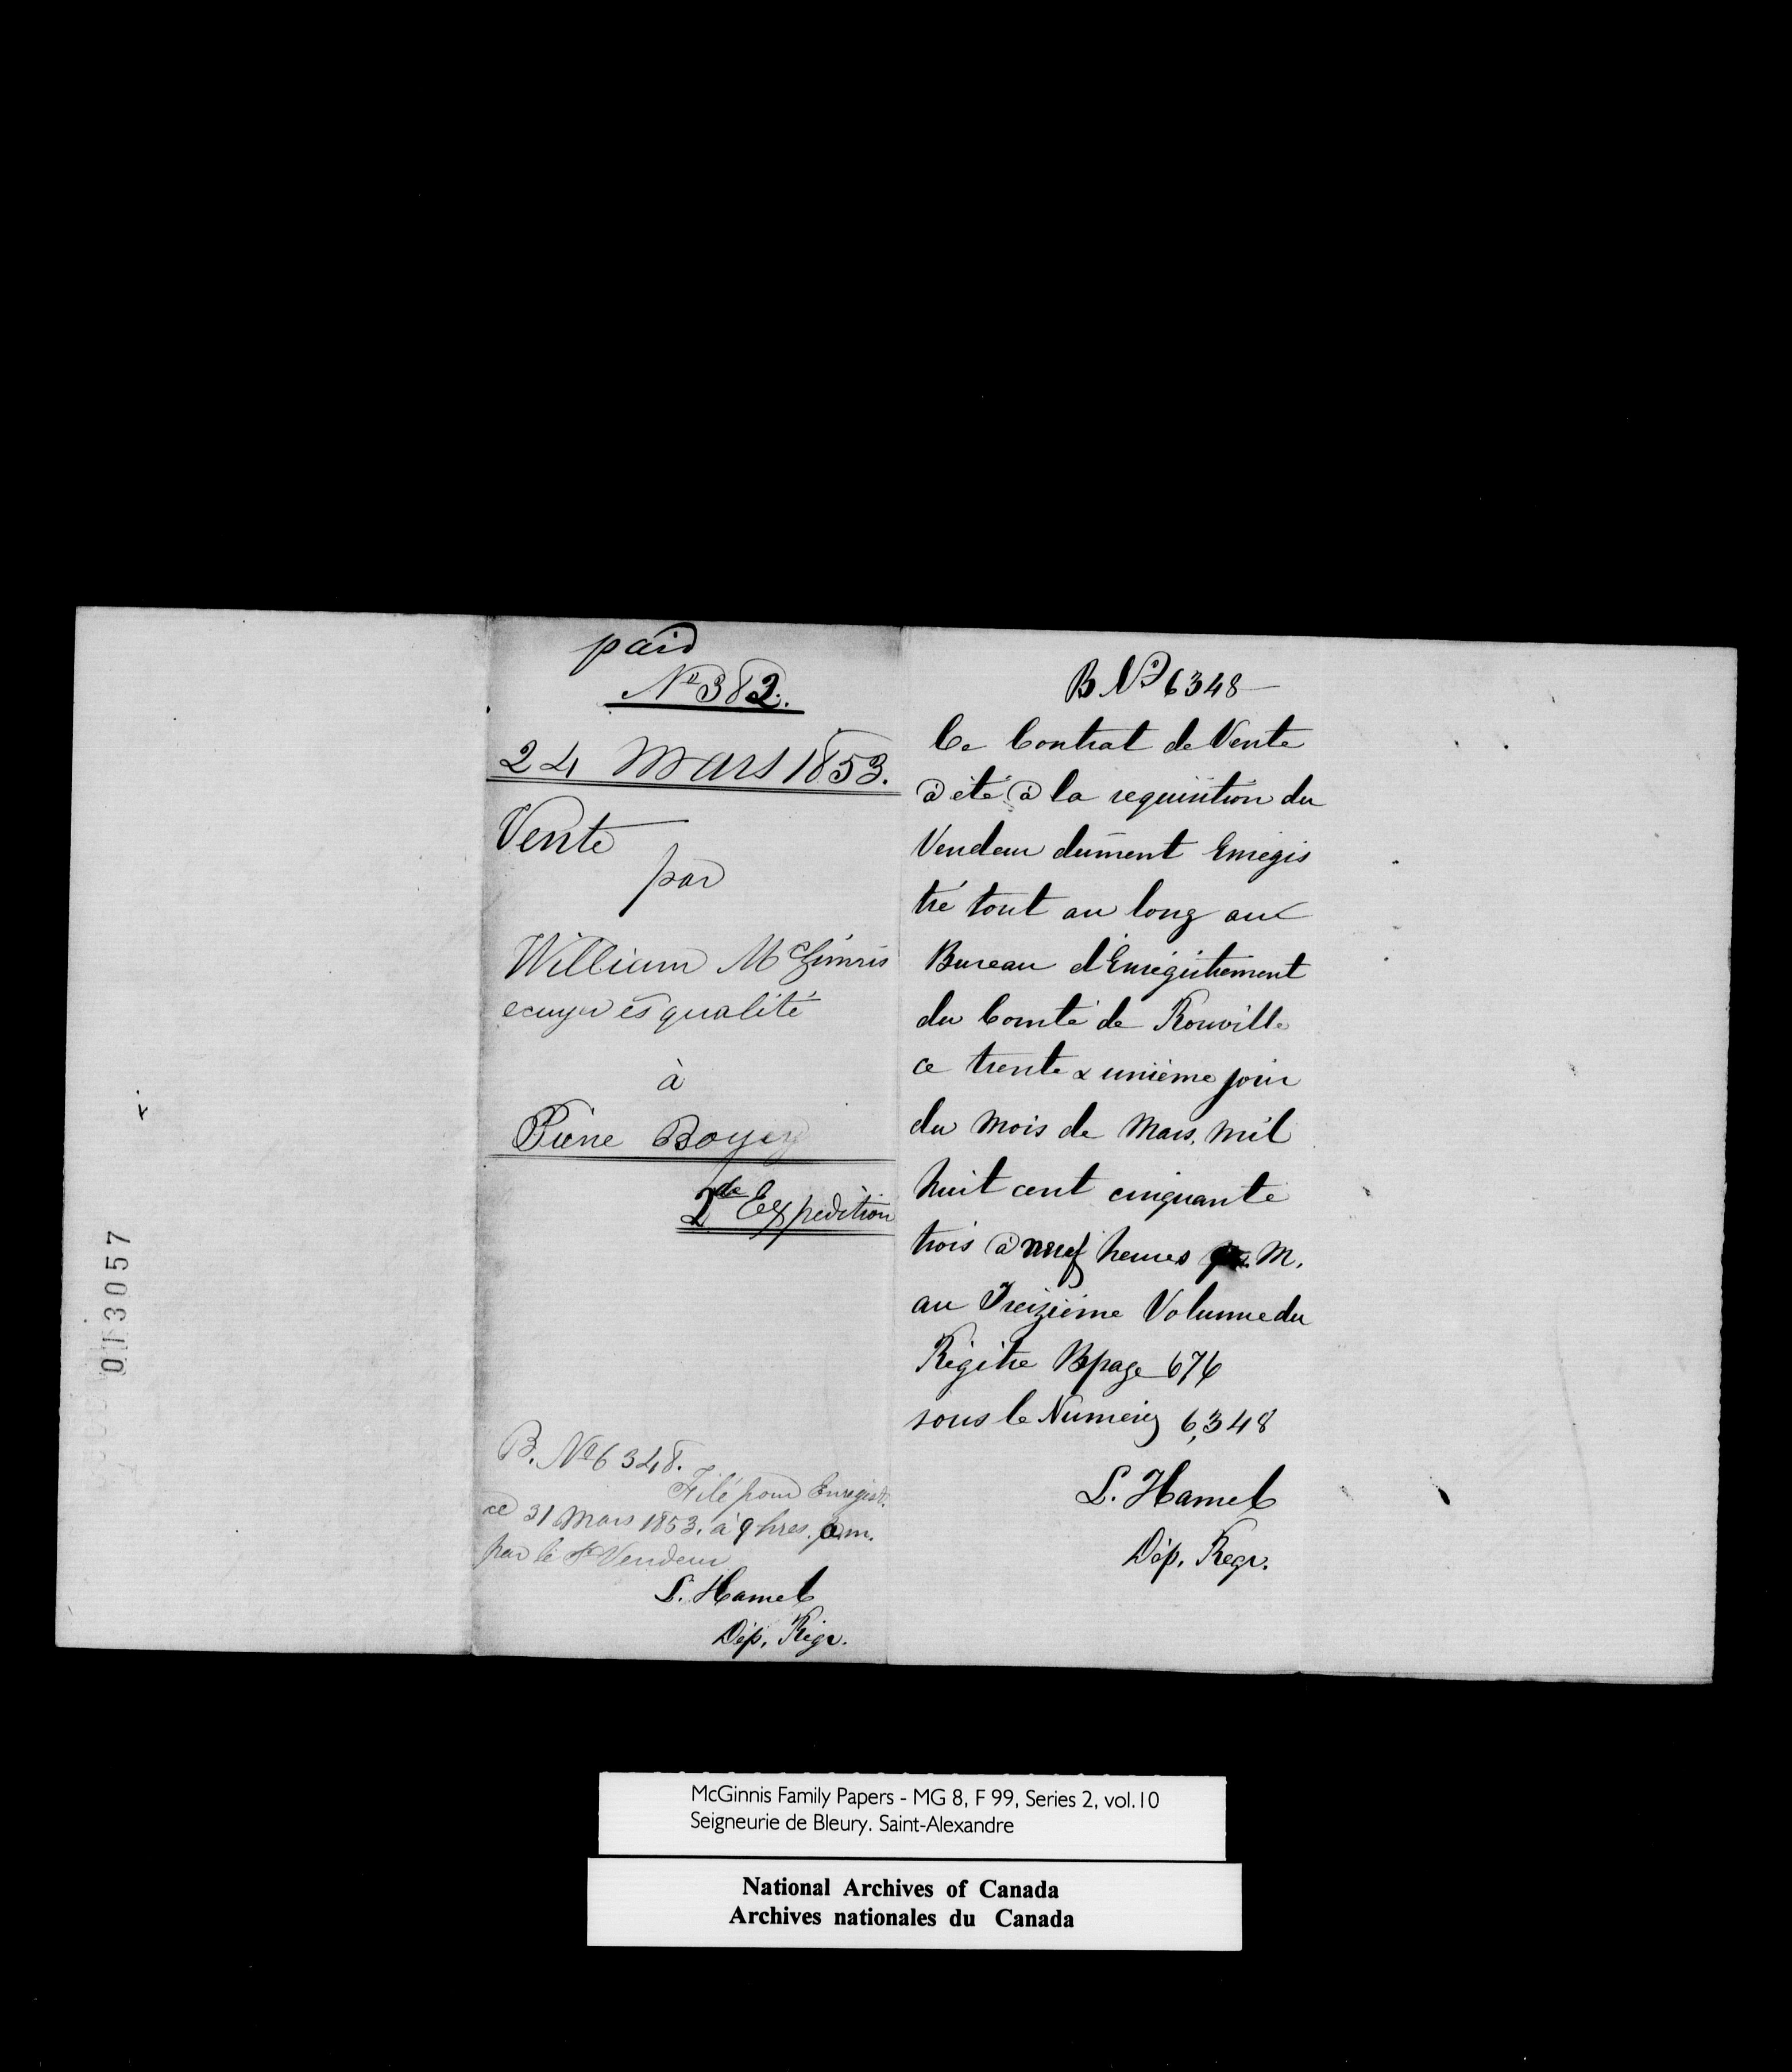 013057
paid
No 382.
24 Mars 1853.
Vente
par
William McGinnis
ecuyer ès qualité
à
Pierre Boyer
2de Expédition
B. No 6348.
Filé pour Enregist.
ce 31 Mars 1853. à 9 hres. a.m.
par le Sr Vendeur
L. Hamel
Dép. Régr.
B No 6348
Ce Contrat de Vente
a été à la requisition du
Vendeur dument Enregis
tré tout au long au
Bureau d'Enregistrement
du Comté de Rouville
ce trente & unième jour
du mois de Mars, mil
huit cent cinquante
trois à neuf heures M.
au Treizième Volume du
Régitre B page 676
sous le Numero 6,348
L. Hamel
Dép. Regr.
McGinnis Family Papers - MG 8, F 99, Series 2, vol.10
Seigneurie de Bleury. Saint-Alexandre
National Archives of Canada
Archives nationales du Canada